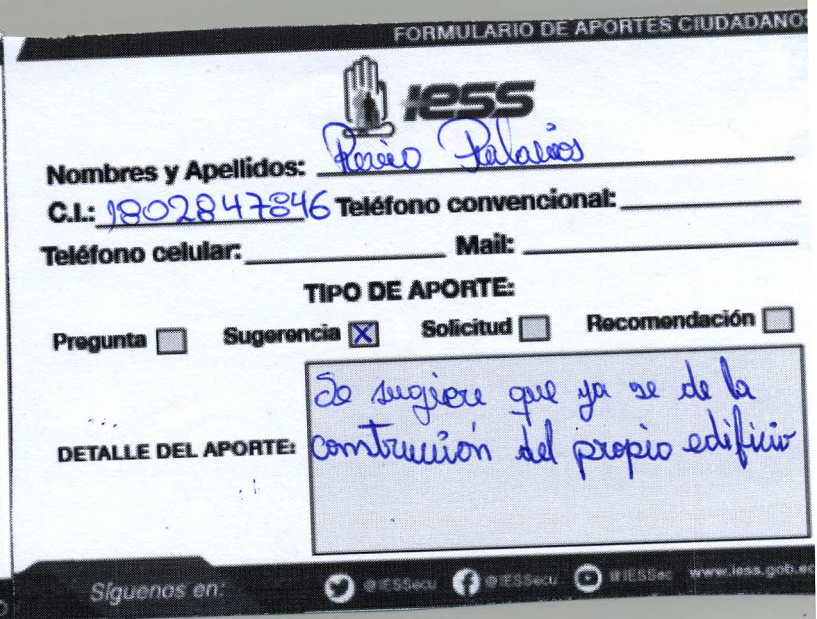 FORMULARIO DE APORTES CIUDADANOS
IESS
Nombres y Apellidos: Palacios
C.I.: 1802847846 Teléfono convencional:
Teléfono celular: Mail:
TIPO DE APORTE:
Pregunta Sugerencia X Solicitud Recomendación
Se sugiere que ya se de la
DETALLE DEL APORTE: contrucción del propio edificio
Síguenos en: @IESSecu @IESSecu @IESSec www.iess.gob.ec